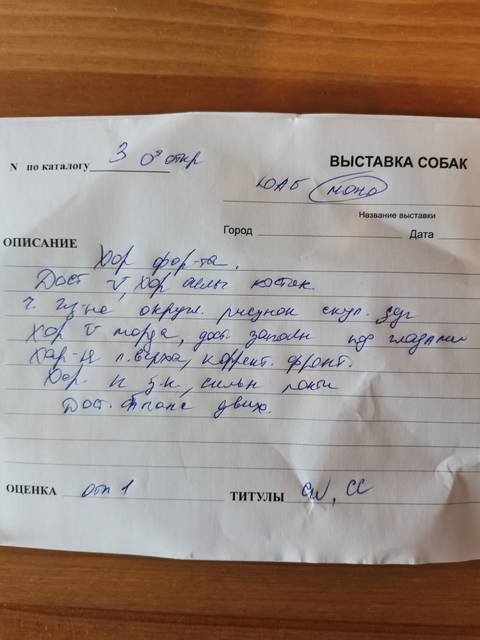 N по каталогу 3 откр
ВЫСТАВКА СОБАК
ЮАБ моно
Название выставки
Город Дата
ОПИСАНИЕ
Хор фор-та,
Дост V, Хор костяк.
округл. рисунок скул.
Хор V морда, дост. заполн под глазами
Хар-я л. верха, коррект. фронт.
Хор. сильн
Дост. движ.
ОЦЕНКА отл 1 ТИТУЛЫ CW, CC